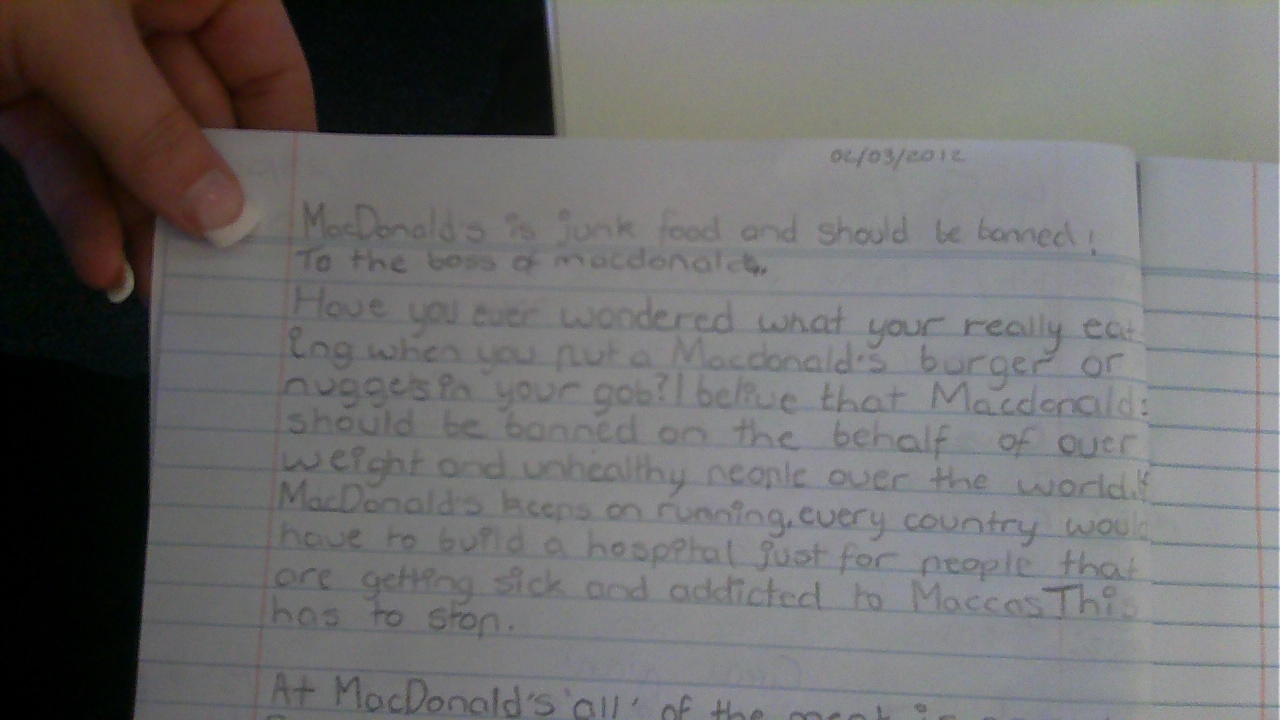 02/03/2012
MacDonald's is junk food and should be banned!
To the boss of macdonalds.
Have you ever wondered what your really eat
ing when you put a Macdonald's burger or
nuggets in your gob? I belive that Macdonalds
should be banned on the behalf of over
weight and unhealthy people over the world. If
MacDonald's keeps on running, every country would
have to build a hospital just for people that
are getting sick and addicted to Maccas This
has to stop.
At MacDonald's 'all' of the meat is